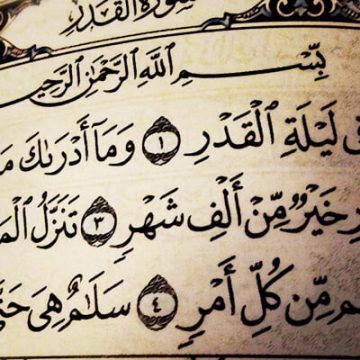 سُورَةُ القَدْرِ
بِسْمِ اللَّهِ الرَّحْمَٰنِ الرَّحِي
لَيْلَةِ ٱلْقَدْرِ ١ وَمَآ أَدْرَىٰكَ مَ
خَيْرٌ مِّنْ أَلْفِ شَهْرٍ ٣ تَنَزَّلُ ٱلْمَ
مِّن كُلِّ أَمْرٍ ٤ سَلَٰمٌ هِىَ حَتَّ